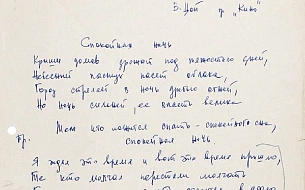 В. Цой гр. „Кино"
Спокойная ночь
Крыши домов дрожат под тяжестью дней,
Небесный пастух пасёт облака,
Город стреляет в ночь дробью огней,
Но ночь сильней, её власть велика
Тем кто ложится спать – спокойного сна,
Спокойная ночь
Пр.
Я ждал это время и вот это время пришло,
Те кто молчал перестали молчать